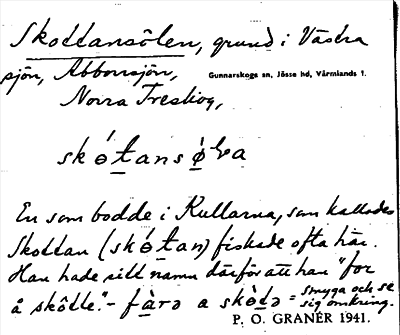 Skottansölen, grund i Västra
sjön, Abborrsjön, Gunnarskogs sn, Jösse hd, Värmlands l.
Norra Treskog,
En som bodde i Kullarna, som kallades
Skottan (skǿtan) fiskade ofta här.
Han hade sitt namn därför att han "for
å skôtte". – fàrə a skòtə = smyga och se
sig omkring.
P. O. GRANÉR 1941.